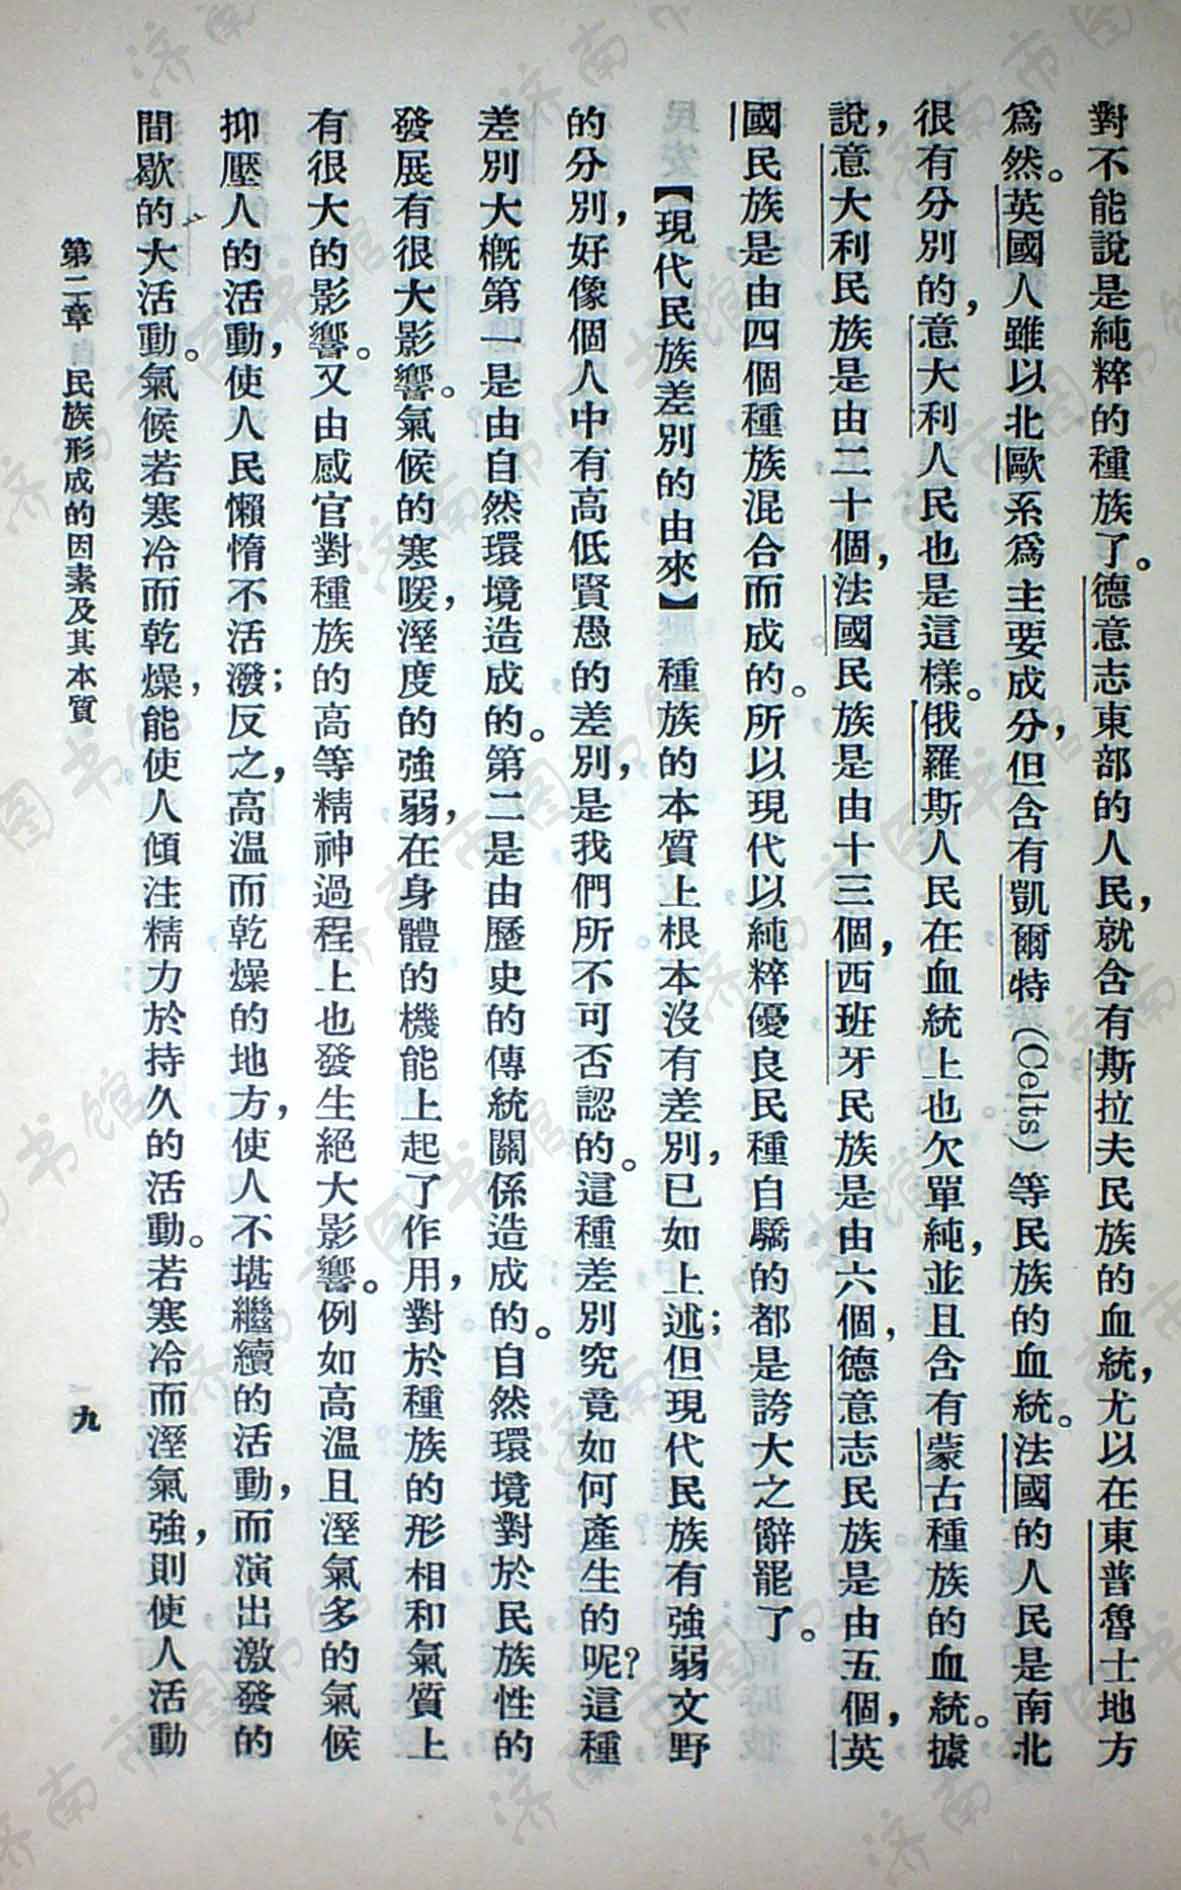 對不能說是純粹的種族了。德意志東部的人民，就含有斯拉夫民族的血統，尤以在東普魯士地方
爲然。英國人雖以北歐系爲主要成分，但含有凱爾特（Celts）等民族的血統。法國的人民是南北
很有分別的，意大利人民也是這樣。俄羅斯人民在血統上也欠單純，並且含有蒙古種族的血統。據
說，意大利民族是由二十個，法國民族是由十三個，西班牙民族是由六個，德意志民族是由五個，英
國民族是由四個種族混合而成的。所以現代以純粹優良民種自驕的都是誇大之辭罷了。
【現代民族差別的由來】種族的本質上根本沒有差別，已如上述；但現代民族有強弱文野
的分別，好像個人中有高低賢愚的差別，是我們所不可否認的。這種差別究竟如何產生的呢？這種
差別大概第一是由自然環境造成的。第二是由歷史的傳統關係造成的。自然環境對於民族性的
發展有很大影響。氣候的寒暖，溼度的強弱，在身體的機能上起了作用，對於種族的形相和氣質上
有很大的影響。又由感官對種族的高等精神過程上也發生絕大影響。例如高温且溼氣多的氣候
抑壓人的活動，使人民懶惰不活潑；反之，高温而乾燥的地方，使人不堪繼續的活動，而演出激發的
間歇的大活動。氣候若寒冷而乾燥，能使人傾注精力於持久的活動。若寒冷而溼氣強，則使人活動
第二章 民族形成的因素及其本質
九
济南市图书馆